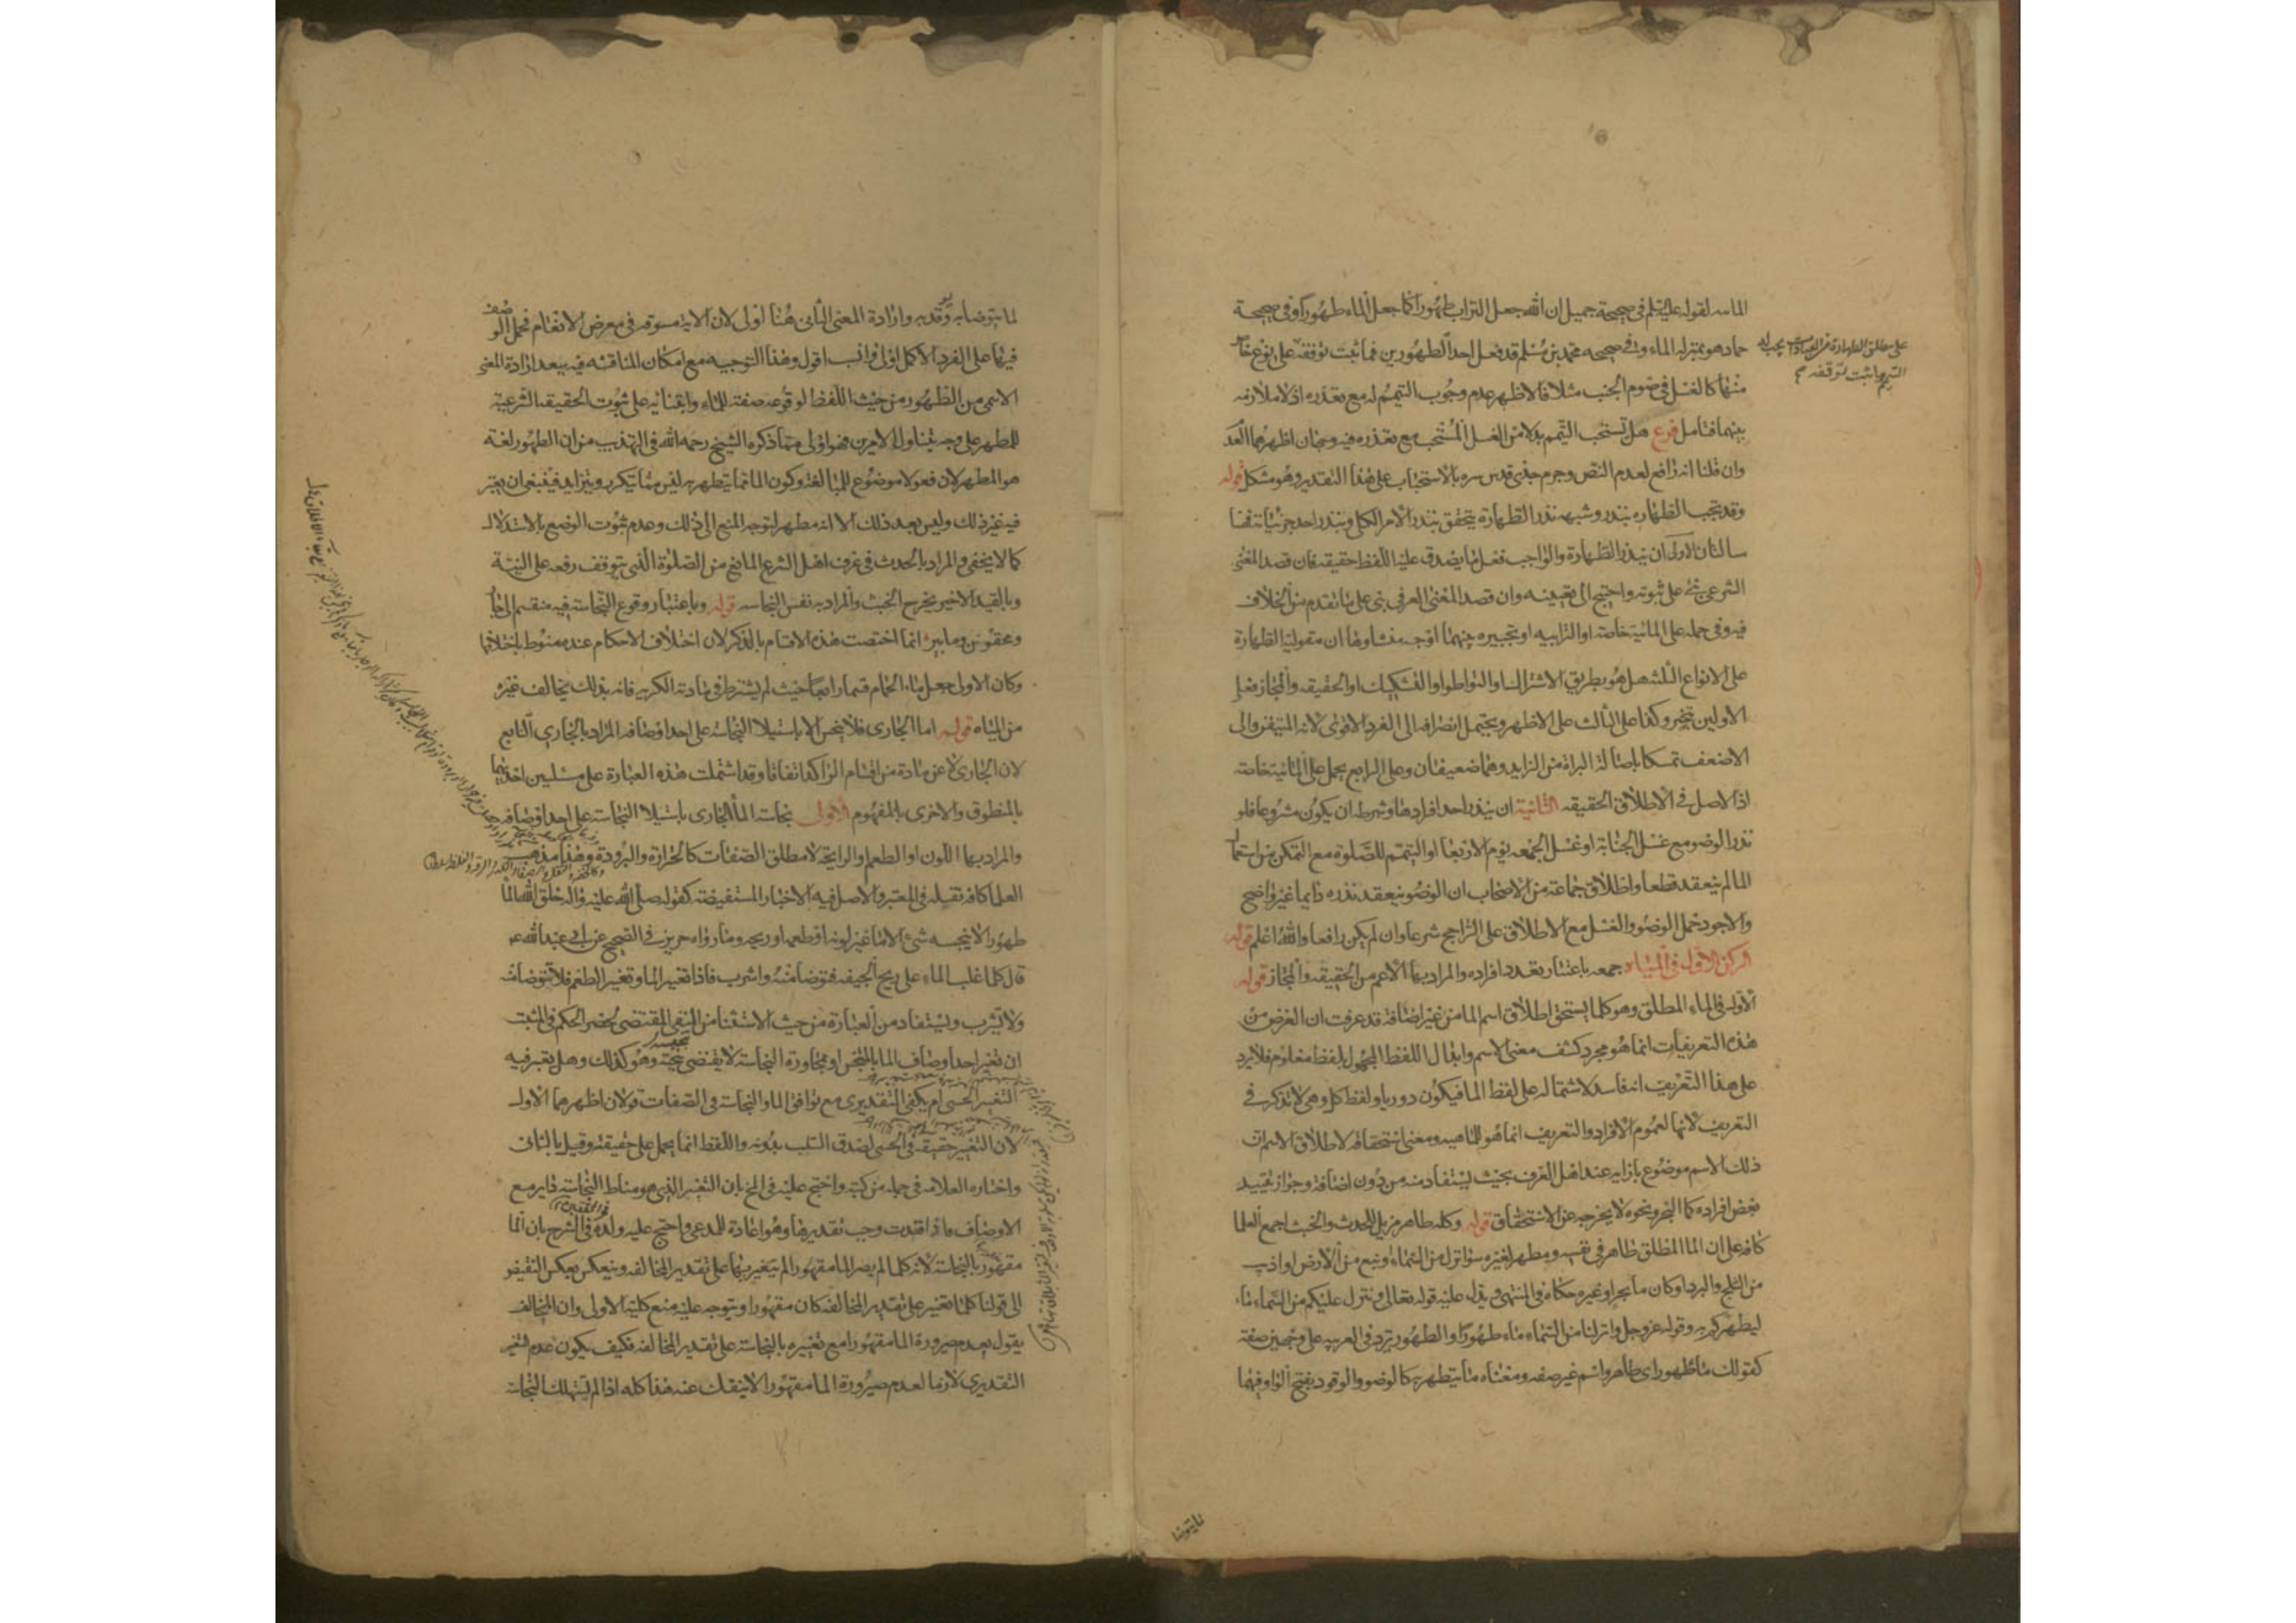 المائيه لقوله عليه السلم في صحيحة جميل ان الله جعل التراب طهورا كما جعل الماء طهورا وفي صحيحة
حماد هو بمنزله الماء وفي صحيحه محمد بن مسلم قد فعل احد الطهورين فما ثبت توقفه على نوع خاص
منها كالغسل في صوم الجنب مثلا فالاظهر عدم وجوب التيمم له مع تعذره اذ لا ملازمه
بينهما فتامل فرع هل تستحب التيمم بدلا من الغسل المستحب مع تعذره فيه وجهان اظهرهما العدم
وان قلنا انه رافع لعدم النص وجزم جدي قدس سره بالاستحباب على هذا التقدير وهو مشكل قوله
وقد تجب الطهاره بنذر وشبهه نذر الطهارة يتحقق بنذر الامر الكلي وبنذر احد جزئياته فهنا
مسالتان الاولى ان ينذر الطهارة والواجب فعل ما يصدق عليه اللفظ حقيقه فان قصد المعنى
الشرعي بني على ثبوته واحتيج الى تعيينه وان قصد المعنى العرفي بنى على ما تقدم من الخلاف
فيه وفي حمله على المائية خاصه او الترابيه او تخييره بينهما اوجه منشاوها ان مقولية الطهارة
على الانواع الثلثه هل هو بطريق الاشتراك او التواطؤ او التشكيك او الحقيقه والمجاز فعلى
الاولين يتخير وكذا على الثالث على الاظهر ويحتمل انصرافه الى الفرد الاقوى لانه المتيقن والى
الاضعف تمسكا باصالة البراة من الزايد وهما ضعيفان وعلى الرابع يحمل على المائية خاصه
اذ الاصل في الاطلاق الحقيقه الثانية ان ينذر احد افرادها وشرطه ان يكون مشروعا فلو
نذر الوضو مع غسل الجنابة او غسل الجمعه يوم الاربعا او التيمم للصلوة مع التمكن من استعمال
الما لم ينعقد قطعا واطلاق جماعة من الاصحاب ان الوضو ينعقد نذره دايما غير واضح
والاجود حمل الوضو والغسل مع الاطلاق على الراجح شرعا وان لم يكن رافعا والله اعلم قوله
الركن الاول في المياه جمعه باعتبار تعدد افراده والمراد بها الاعم من الحقيقه والمجاز قوله
الاول في الماء المطلق وهو كلما يستحق اطلاق اسم الما من غير اضافة قد عرفت ان الغرض من
هذه التعريفات انما هو مجرد كشف معنى الاسم وابدال اللفظ المجهول بلفظ معلوم فلا يرد
على هذا التعريف انه فاسد لاشتماله على لفظ الما فيكون دوريا ولفظ كل وهي لا تذكر في
التعريف لانها لعموم الافراد والتعريف انما هو للماهيه ومعنى استحقاقه لاطلاق الاسم ان
ذلك الاسم موضوع بازايه عند اهل العرف بحيث يستفاد منه من دون اضافة وجواز تقييد
بعض افراده كما البحر ونحوه لا يخرجه عن الاستحقاق قوله وكله طاهر مزيل للحدث والخبث اجمع العلما
كافة على ان الما المطلق طاهر في نفسه ومطهر لغيره سوا نزل من السماء او نبع من الارض او اذيب
من الثلج والبرد او كان ما بحر او غيره حكاه في المنتهى ويدل عليه قوله تعالى وينزل عليكم من السماء ماء
ليطهركم به وقوله عز وجل وانزلنا من السماء ماء طهورا والطهور يرد في العربيه على وجهين صفة
كقولك ماء طهور اى طاهر واسم غير صفه ومعناه ما يتطهر به كالوضو والوقود بفتح الواو فيهما
على مطلق الطهارة من العبادات يجب له
التيمم وما ثبت توقفه
لما يتوضا به ويوقد به وارادة المعنى الثاني هنا اولى لان الاية مسوقه في معرض الانعام فحمل الوصف
فيها على الفرد الاكمل اولى وانسب اقول وهذا التوجيه مع امكان المناقشه فيه يبعد ارادة المعنى
الاسمي من الطهور من حيث اللفظ لوقوعه صفة للماء وابتنائه على ثبوت الحقيقه الشرعية
للمطهر على وجه يتناول الامرين فهو اولى مما ذكره الشيخ رحمه الله في التهذيب من ان الطهور لغة
هو المطهر لان فعولا موضوع للمبالغة وكون الما مما يتطهر به ليس مما يتكرر ويتزايد فينبغي ان يعتبر
فيه غير ذلك وليس بعد ذلك الا انه مطهر لتوجه المنع الى ذلك وعدم ثبوت الوضع بالاستدلال
كما لا يخفى والمراد بالحدث في عرف اهل الشرع المانع من الصلوة الذي يتوقف رفعه على النية
وبالقيد الاخير يخرج الخبث والمراد به نفس النجاسه قوله وباعتبار وقوع النجاسة فيه منقسم الى جار
ومحقون وما بير انما اختصت هذه الاقسام بالذكر لان اختلاف الاحكام عنده منوط باختلافها
وكان الاولى جعل ماء الحمام قسما رابعا حيث لم يشترط في مادته الكريه فانه بذلك يخالف غيره
من المياه قوله اما الجاري فلا ينجس الا باستيلا النجاسه على احد اوصافه المراد بالجاري النابع
لان الجاري لا عن مادة من اقسام الراكد اتفاقا وقد اشتملت هذه العبارة على مسئلتين احديهما
بالمنطوق والاخرى بالمفهوم الاولى نجاسة الما الجاري باستيلا النجاسة على احد اوصافه
والمراد بها اللون او الطعم او الرايحة لا مطلق الصفات كالحرارة والبرودة وهذا مذهب
العلما كافة نقله في المعتبر والاصل فيه الاخبار المستفيضه كقوله صلى الله عليه واله خلق الله الما
طهورا لا ينجسه شئ الا ما غير لونه او طعمه او ريحه وما رواه حريز في الصحيح عن ابي عبد الله ع
قال كلما غلب الماء على ريح الجيفه فتوضا منه واشرب فاذا تغير الما وتغير الطعم فلا تتوضا منه
ولا تشرب ويستفاد من العبارة من حيث الاستثنا من النفي المقتضى لحصر الحكم في المثبت
ان تغير احد اوصاف الما بالمتنجس او مجاورة النجاسة لا يقتضى تنجيسه وهو كذلك وهل يعتبر فيه
التغير الحسي ام يكفي التقديري مع توافق الما والنجاسة في الصفات قولان اظهرهما الاول
لان التغير حقيقة في الحسي لصدق السلب بدونه واللفظ انما يحمل على حقيقته وقيل بالثاني
واختاره العلامه في جملة من كتبه واحتج عليه في المخ بان التغير الذي هو مناط النجاسة داير مع
الاوصاف فاذا فقدت وجب تقديرها وهو اعادة للمدعى واحتج عليه ولده في الشرح بان الما
مقهور بالنجاسة لانه كلما لم يصر الما مقهورا لم يتغير بها على تقدير المخالفه وينعكس بعكس النقيض
الى قولنا كلما تغير على تقدير المخالفه كان مقهورا ويتوجه عليه منع كلية الاولى وان المخالف
يقول بعدم صيرورة الما مقهورا مع تغيره بالنجاسة على تقدير المخالفه فكيف يكون عدم التغير
التقديري لازما لعدم صيرورة الما مقهورا لا ينفك عنه هذا كله اذا لم يستهلك النجاسة